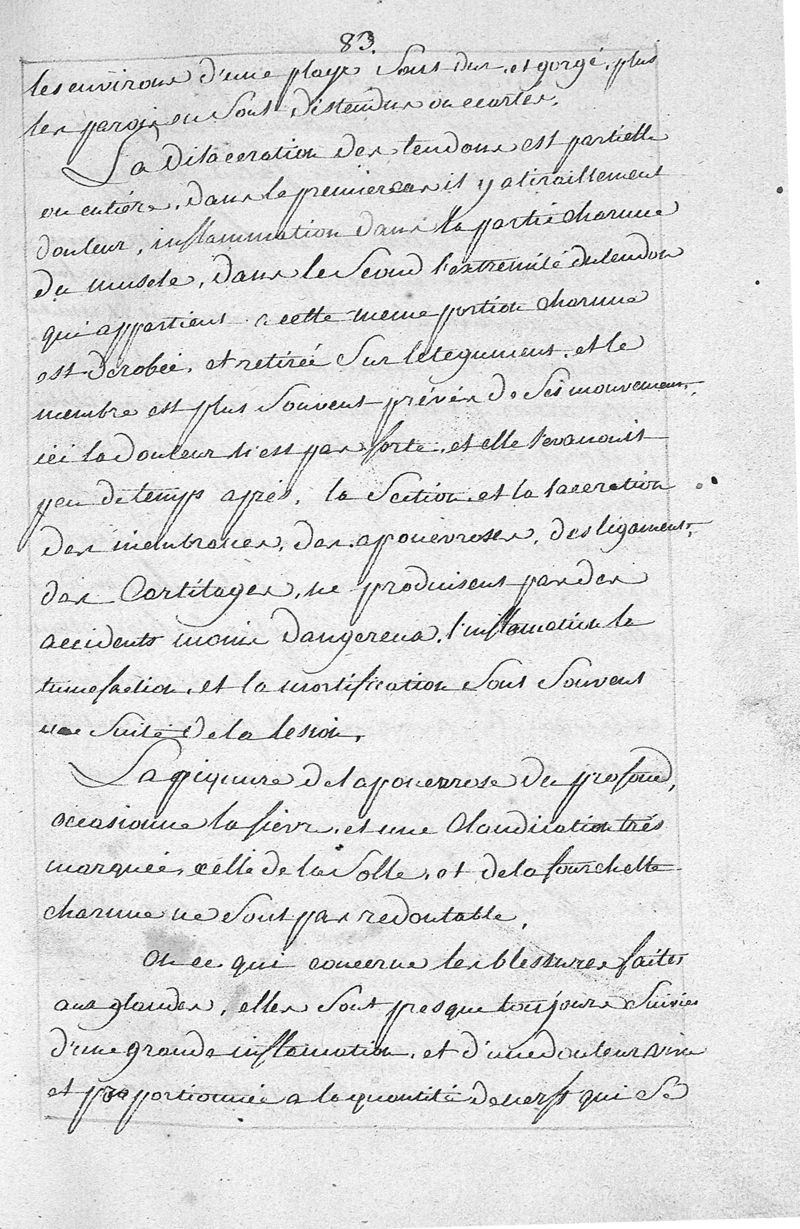 83.
les environs d'une playe sont dur, et gorgé, plus
les parois en sont distendus ou ecartes.
La dilaceration des tendons est partielle
ou entiére, dans le premier cas il y a tiraillement
douleur, inflammation dans la partie charnue
du muscle, dans le second l'extremité du tendon
qui appartient a cette meme portion charnue
est derobée, et retirée sur le tegument, et le
membre est plus souvent privér de ses mouvement,
ici la douleur n'est pas forte, et elle s'evanouit
peu de temps aprés. la section, et la laceration
des membranes, des aponevroses, des ligament,
des cartilages, ne produisent pas des
accidents moins dangereux. l'inflamation la
tumefaction, et la mortification sont souvent
une suite de la lesion.
La piqure de l'aponevrose du profond,
occasionne la fievre, et une claudication trés
marquée, celle de la solle, et de la fourchette
charnue ne sont pas redoutable.
En ce qui concerne les blessures faites
aux glandes, elles sont presque toujours suivies
d'une grande inflamation, et d'une douleur vive
et proportionnée a la quantité de nerfs qui se